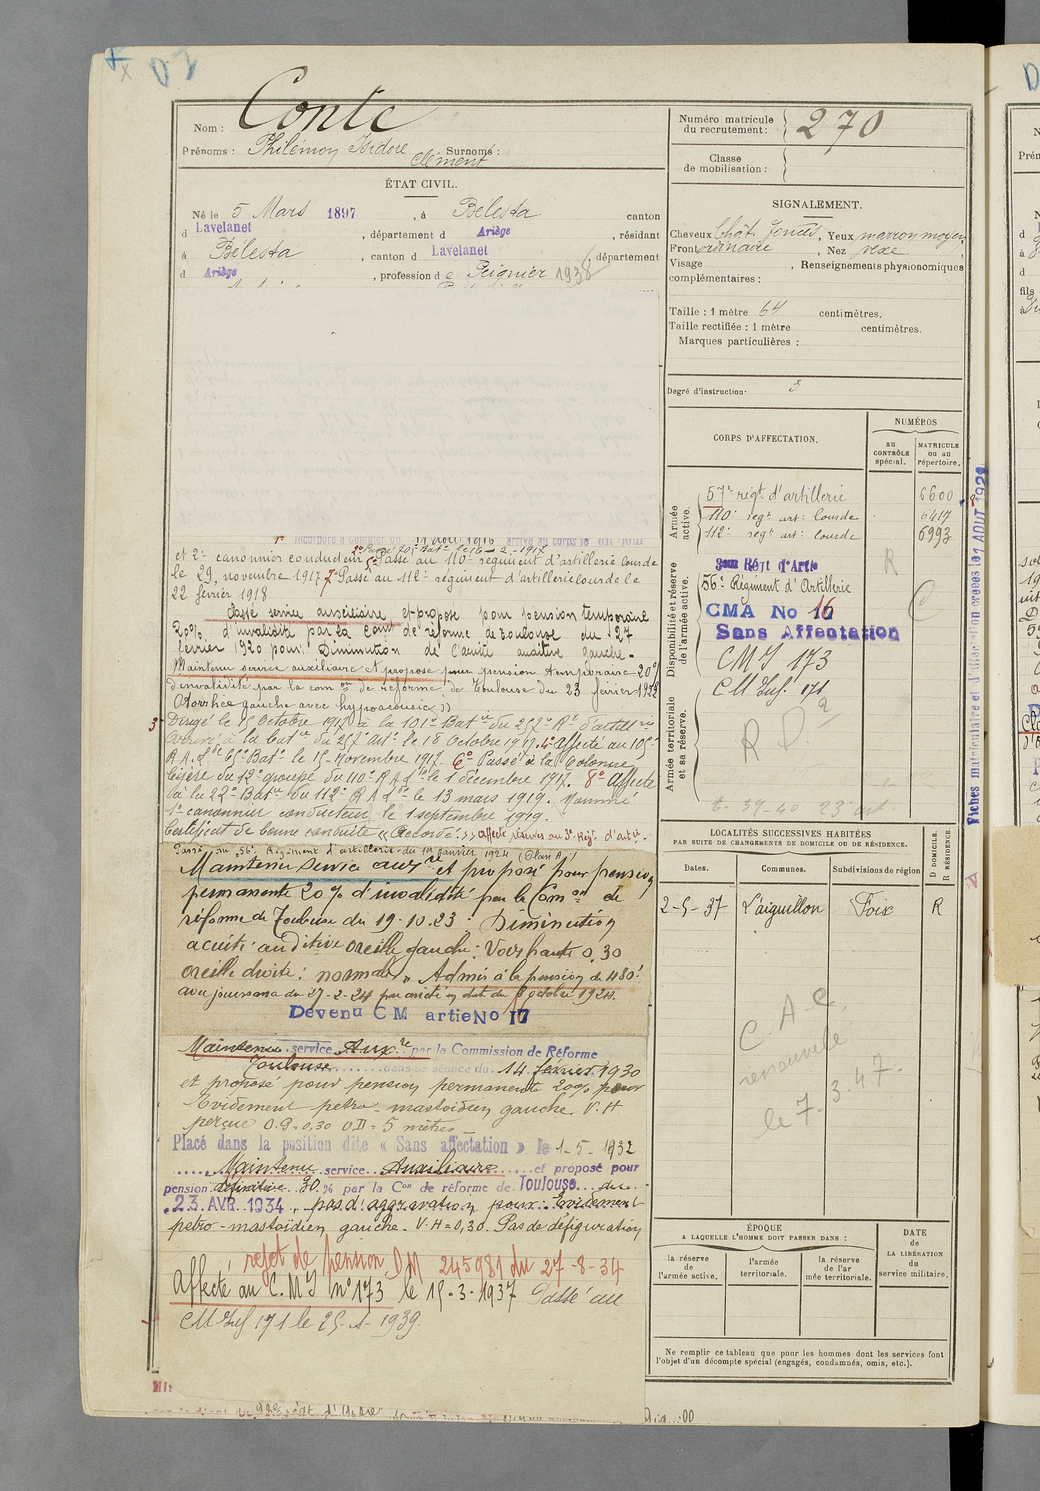 Nom : Conte
Prénoms : Philémon Isidore Clément Surnoms :
ÉTAT CIVIL.
Né le 5 Mars 1897, à Bélesta canton
d Lavelanet, département d Ariège, résidant
à Bélesta, canton d Lavelanet, département
d Ariège, profession d e Peignier 1938
Numéro matricule du recrutement : 270
Classe de mobilisation :
SIGNALEMENT.
Cheveux chât. foncés, Yeux marron moyen
Front ordinaire, Nez vexe
Visage , Renseignements physionomiques
complémentaires :
Taille : 1 mètre 64 centimètres.
Taille rectifiée : 1 mètre centimètres.
Marques particulières :
Degré d'instruction. 3
CORPS D'AFFECTATION.
NUMÉROS
au CONTRÔLE spécial.
MATRICULE ou au répertoire.
Armée active.
57e régt d'artillerie 6600
110e regt art: lourde 6417
112e regt art: lourde 6993
Disponibilité et réserve de l'armée active.
3eme Régt d'Artie
56e Régiment d'Artillerie
CMA No 16
Sans Affectation
CMI 173
CM Inf. 171
Armée territoriale et sa réserve.
R
Fiches matriculaire et d'affection créées le 1 AOUT 1928
1° Incorporé à compter du 11 Août 1916 arrivé au corps le dit jour
et 2e canonnier conducteur 2° Passé 70e Bat. le 16-2-1917 5° Passé au 110e régiment d'artillerie lourde
le 29 novembre 1917 7° Passé au 112e régiment d'artillerie lourde le
22 février 1918
Classé service auxiliaire et proposé pour pension temporaire
20% d'invalidité par la Com de réforme de Toulouse du 27
février 1920 pour: Diminution de l'acuité auditive gauche -
Maintenu service auxiliaire et proposé pour pension temporaire 20%
d'invalidité par la com on de réforme de Toulouse du 23 février 1922
Otorrhée gauche avec hypoacousie ))
3° Dirigé le 15 Octobre 1917 à le 101e Batie du 257e Rt d'artillerie
arrivé à la batie du 257 art. le 18 Octobre 1917. 4° affecté au 105e
R.A.L. 65e Batie le 15 Novembre 1917. 6° Passé à la Colonne
légère du 12e groupe du 110e R A Lde le 1 décembre 1917. 8° Affecté
à la 22e Batie du 112e R A Lde le 13 mars 1919. Nommé
1er canonnier conducteur le 1 septembre 1919.
Certificat de bonne conduite « Accordé ». affecté réserves au 3e Régt. d'artie.
Passé au 56e Régiment d'artillerie du 1er janvier 1924 (Plan A)
Maintenu service auxre et proposé pour pension
permanente 20% d'invalidité par la Com on de
réforme de Toulouse du 19-10-23: Diminution
acuité auditive oreille gauche: Voix haute 0,30
oreille droite: normale » Admis à la pension de 480f
avec jouissance du 27-2-24 par arrêté en date du 8 octobre 1924.
Devenu C M artie No 17
Maintenu service Auxre par la Commission de Réforme
Toulouse dans sa séance du 14 février 1930
et proposé pour pension permanente 20% pour
Evidement pétro-mastoïdien gauche. V.H
perçue O.G=0,30 O.D=5 mètres
Placé dans la position dite « Sans affectation » le 1-5-1932
Maintenu service Auxiliaire et proposé pour
pension définitive 30% par la Con de réforme de Toulouse du
23 AVR. 1934, pas d'aggravation pour: Evidement
pétro-mastoïdien gauche - V.H=0,30. Pas de défiguration
rejet de pension DM 245981 du 27-8-34
Affecté au C.M.I n° 173 le 15-3-1937 Passé au
CM Inf 171 le 25-1-1939.
LOCALITÉS SUCCESSIVES HABITÉES
PAR SUITE DE CHANGEMENTS DE DOMICILE OU DE RÉSIDENCE.
Dates. Communes. Subdivisions de région D DOMICILE. R RÉSIDENCE.
2-5-37 L'aiguillon Foix R
C. A. C.
renouvelé
le 7-3-47.
ÉPOQUE
A LAQUELLE L'HOMME DOIT PASSER DANS :
la réserve de l'armée active.
l'armée territoriale.
la réserve de l'armée territoriale.
DATE de LA LIBÉRATION du service militaire.
Ne remplir ce tableau que pour les hommes dont les services font
l'objet d'un décompte spécial (engagés, condamnés, omis, etc.).